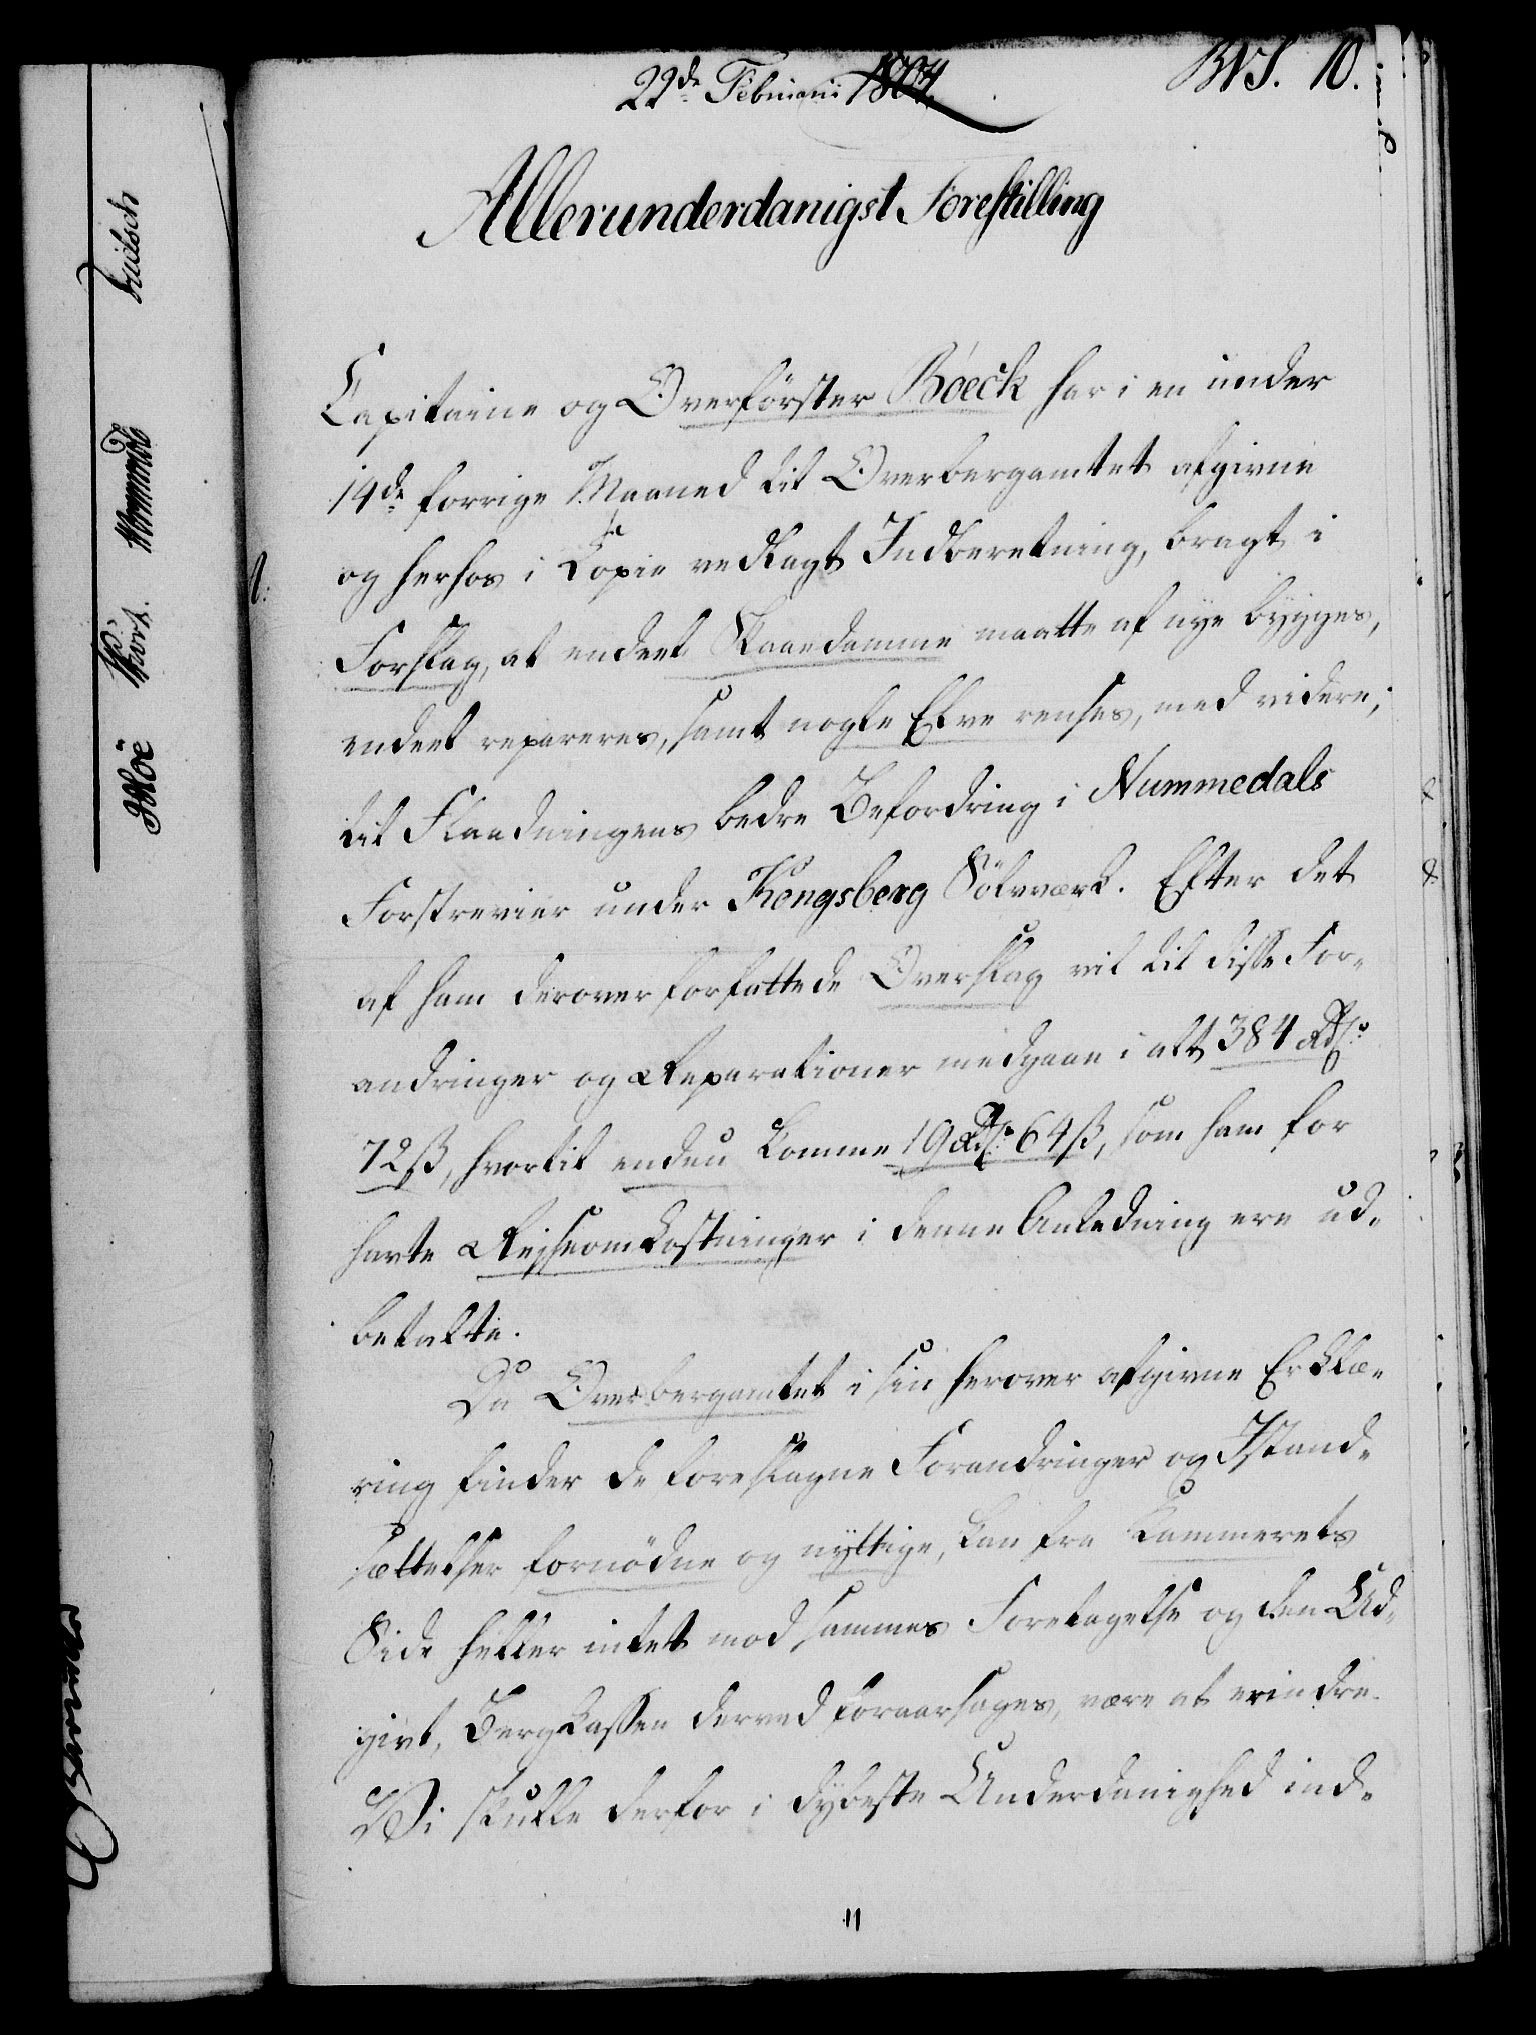 22de Februarii 1804.
BVS. 10.
Allerunderdanigst Forestilling
Capitaine og Overförster Böeck har i en under
14de forrige Maaned til Overbergamtet afgivne
og herhos i Copie vedlagt Indberetning, bragt i
Forslag, at endeel Skaadamme maatte af nye bygges,
endeel repareres, samt nogle Elve renses, med videre,
til Flaadningens bedre Befordring i Nummedals
Forstrevier under Kongsberg Sölvværk. Efter det
af ham derover forfattede Overslag vil til disse For-
andringer og Reparationer medgaae i alt 384 Rdl.
72 ß, hvortil endnu komme 19 Rdl. 64 ß, som ham for
havte Rejseomkostninger i denne Anledning ere ud-
betalte.
Da Overbergamtet i sin herover afgivne Erklæ-
ring finder de foreslagne Forandringer og Istand-
sættelser fornödne og nyttige, kan fra Kammerets
Side heller intet mod sammes Foretagelse og den Ud-
givt, Bergkassen derved foraarsages, være at erindre.
Vi skulle derfor i dybeste Underdanighed ind-
11